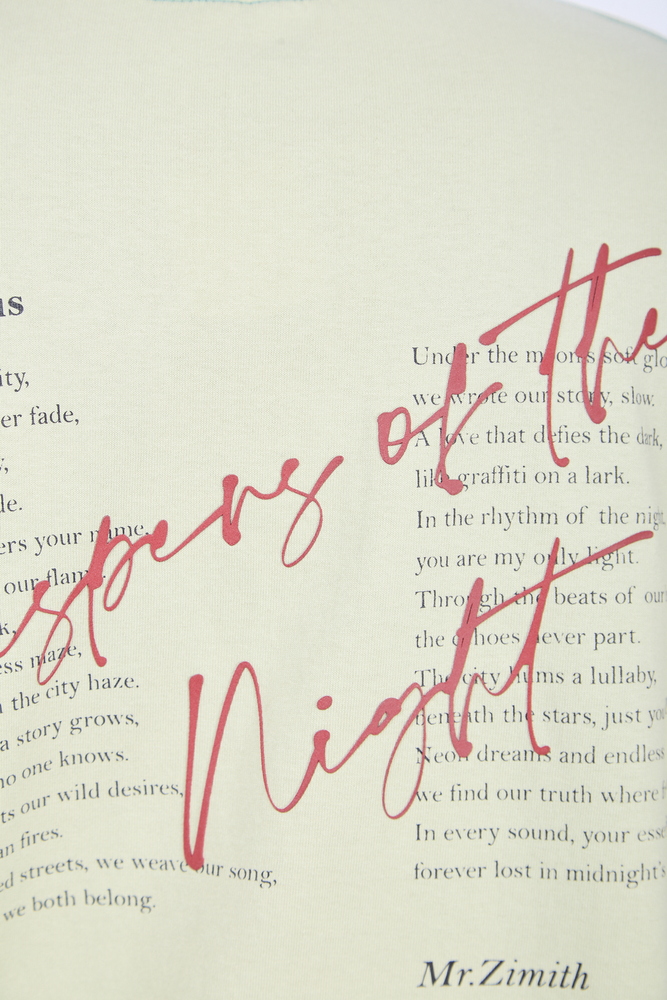 us
ity,
er fade,
y,
de.
ers your name,
our flame.
k,
ess maze,
the city haze.
a story grows,
no one knows.
ts our wild desires,
an fires.
ed streets, we weave our song,
we both belong.
spers of the
Night
Under the moon's soft glo
we wrote our story, slow.
A love that defies the dark,
like graffiti on a lark.
In the rhythm of the nig
you are my only light.
Through the beats of our
the echoes never part.
The city hums a lullaby,
beneath the stars, just yo
Neon dreams and endless
we find our truth where
In every sound, your esse
forever lost in midnight's
Mr.Zimith